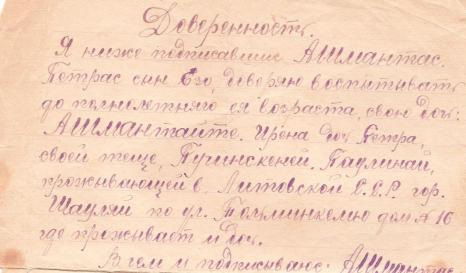 Доверенность.
Я ниже подписавшис Ашмантас.
Петрас сын Езо, доверяю воспитывать
до полнилетняго ея возраста, свою доч:
Ашмантайте. Ирена доч Петра,
своей теще, Пучинскеней. Паулинай,
проживающей в Литовской С.С.Р. гор.
Шауляй по ул. дом № 16
где проживает и доч.
В чем и подписываюс. Ашмантас